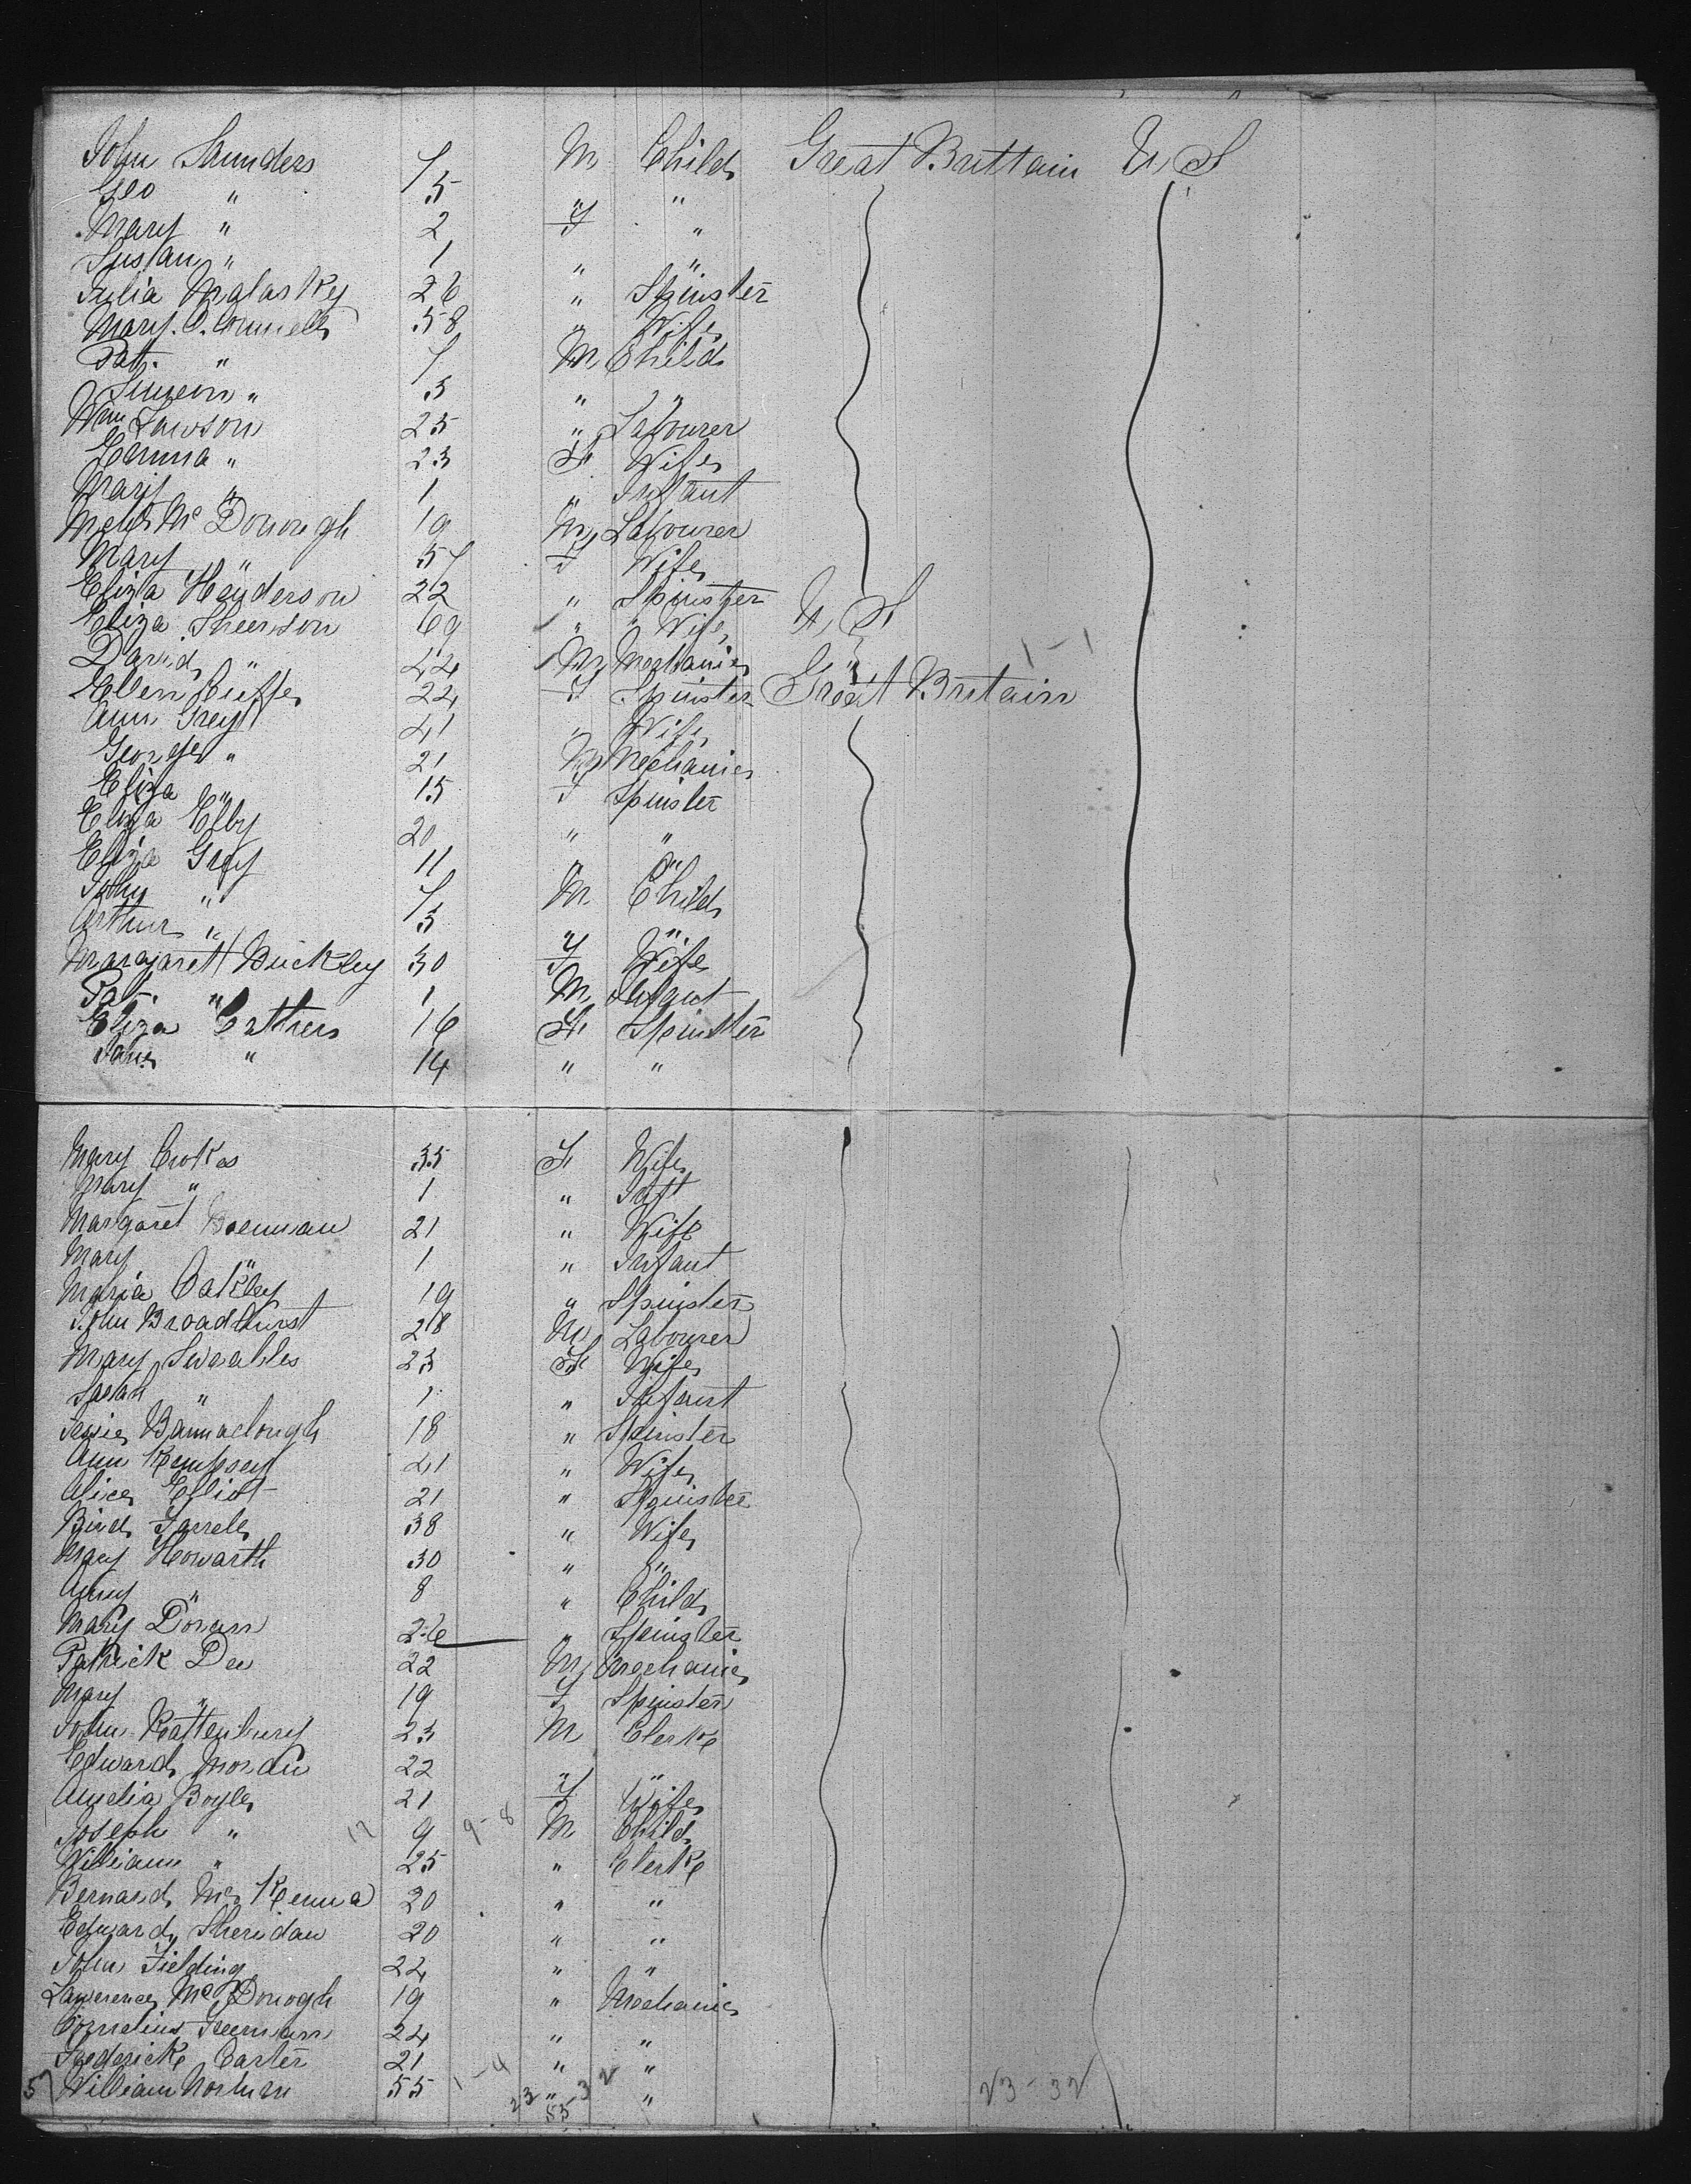 John Saunders 7 M Child Great Brittain U, S
Geo " 5 " "
Mary " 2 F "
Susan " 1 " "
Julia 26 " Spinster
Mary. O. Connell 58 " Wife
Pat. " 7 M Child
Simeon " 3 " "
Wm Lawson 25 " Labourer
Emma " 23 F Wife
Mary " 1 " Infant
Mc Donough 19 M Labourer
Mary " 57 F Wife
Eliza Henderson 22 " Spinster
Eliza 69 " Wife U, S
David " 44 M Mechanic " 1-1
Ellen 22 F Spinster Great Britain
Ann Grey 41 " Wife
George " 21 M Mechanic
Eliza " 15 F Spinster
Eliza Elby 20 " "
Eliza Grey 11 " "
John " 7 M Child
Arthur " 3 " "
Margarett Buckley 30 F Wife
Pat. " 1 M Infant
Eliza 16 F Spinster
Jane " 14 " "
Mary 35 F Wife
Mary " 1 " Inft
Margaret 21 " Wife
Mary " 1 " Infant
Maria Oakley 19 " Spinster
John Broadhurst 28 M Labourer
Mary 23 F Wife
Sarah " 1 " Infant
Jessie 18 " Spinster
Ann Kempsey 41 " Wife
Alice Elliot 21 " Spinster
Bird Farrell 38 " Wife
Mary Howarth 30 " "
Amy " 8 " Child
Mary Doran 26 " Spinster
Patrick Dee 22 M Mechanic
Mary " 19 F Spinster
John Rattenbury 23 M Clerke
Edward 22 " "
Amelia Boyle 21 F Wife
Joseph " 17 9 9-8 M Child
William " 25 " Clerke
Bernard Mc Kenna 20 " "
Edward Sheridan 20 " "
John Fielding 22 " "
Lawerence Mc Donogh 19 " Mechanic
Cornelius Freeman 24 " "
Frederick Carter 21 " "
57 William 55 1-4 " " 23-32
23 55-32